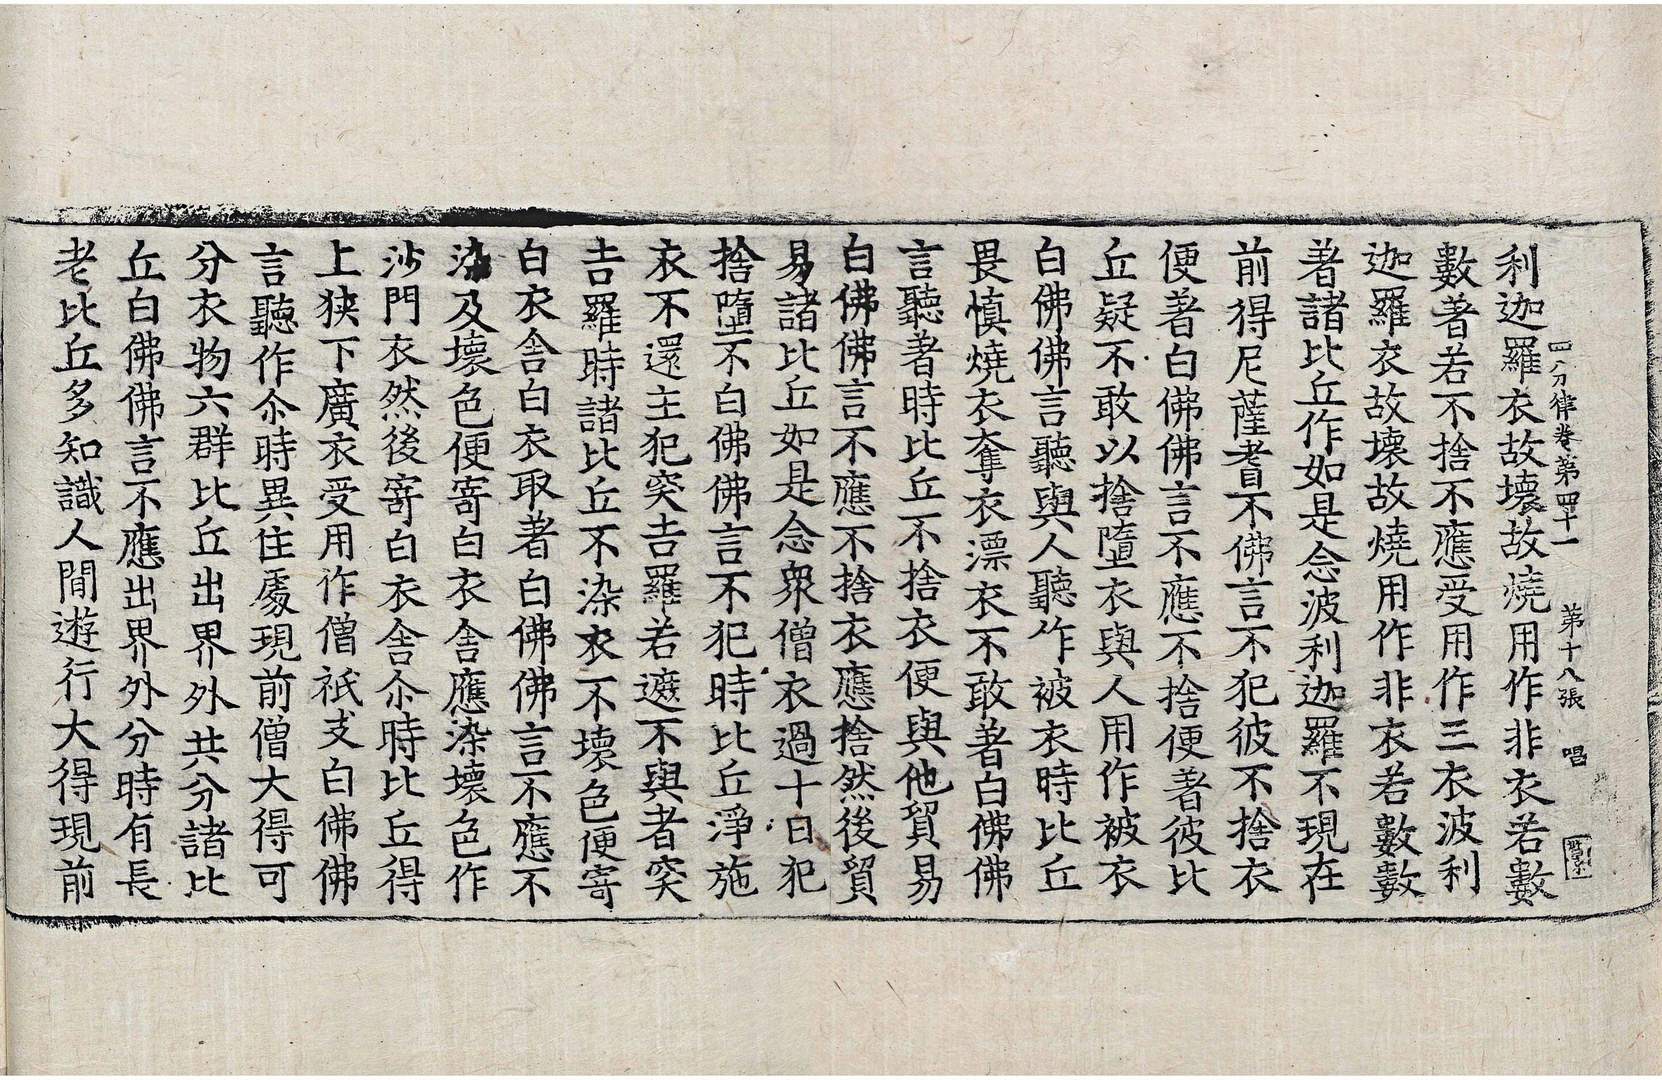 四分律卷第四十一 第十八張 唱
利迦羅衣故壞故燒用作非衣若數
數著若不捨不應受用作三衣波利
迦羅衣故壞故燒用作非衣若數數
著諸比丘作如是念波利迦羅不現在
前得尼薩耆不佛言不犯彼不捨衣
便著白佛佛言不應不捨便著彼比
丘疑不敢以捨墮衣與人用作被衣
白佛佛言聽與人聽作被衣時比丘
畏慎燒衣奪衣漂衣不敢著白佛佛
言聽著時比丘不捨衣便與他貿易
白佛佛言不應不捨衣應捨然後貿
易諸比丘如是念衆僧衣過十日犯
捨墮不白佛佛言不犯時比丘淨施
衣不還主犯突吉羅若遮不與者突
吉羅時諸比丘不染衣不壞色便寄
白衣舍白衣取著白佛佛言不應不
染及壞色便寄白衣舍應染壞色作
沙門衣然後寄白衣舍尒時比丘得
上狹下廣衣受用作僧祇支白佛佛
言聽作尒時異住處現前僧大得可
分衣物六群比丘出界外共分諸比
丘白佛佛言不應出界外分時有長
老比丘多知識人間遊行大得現前